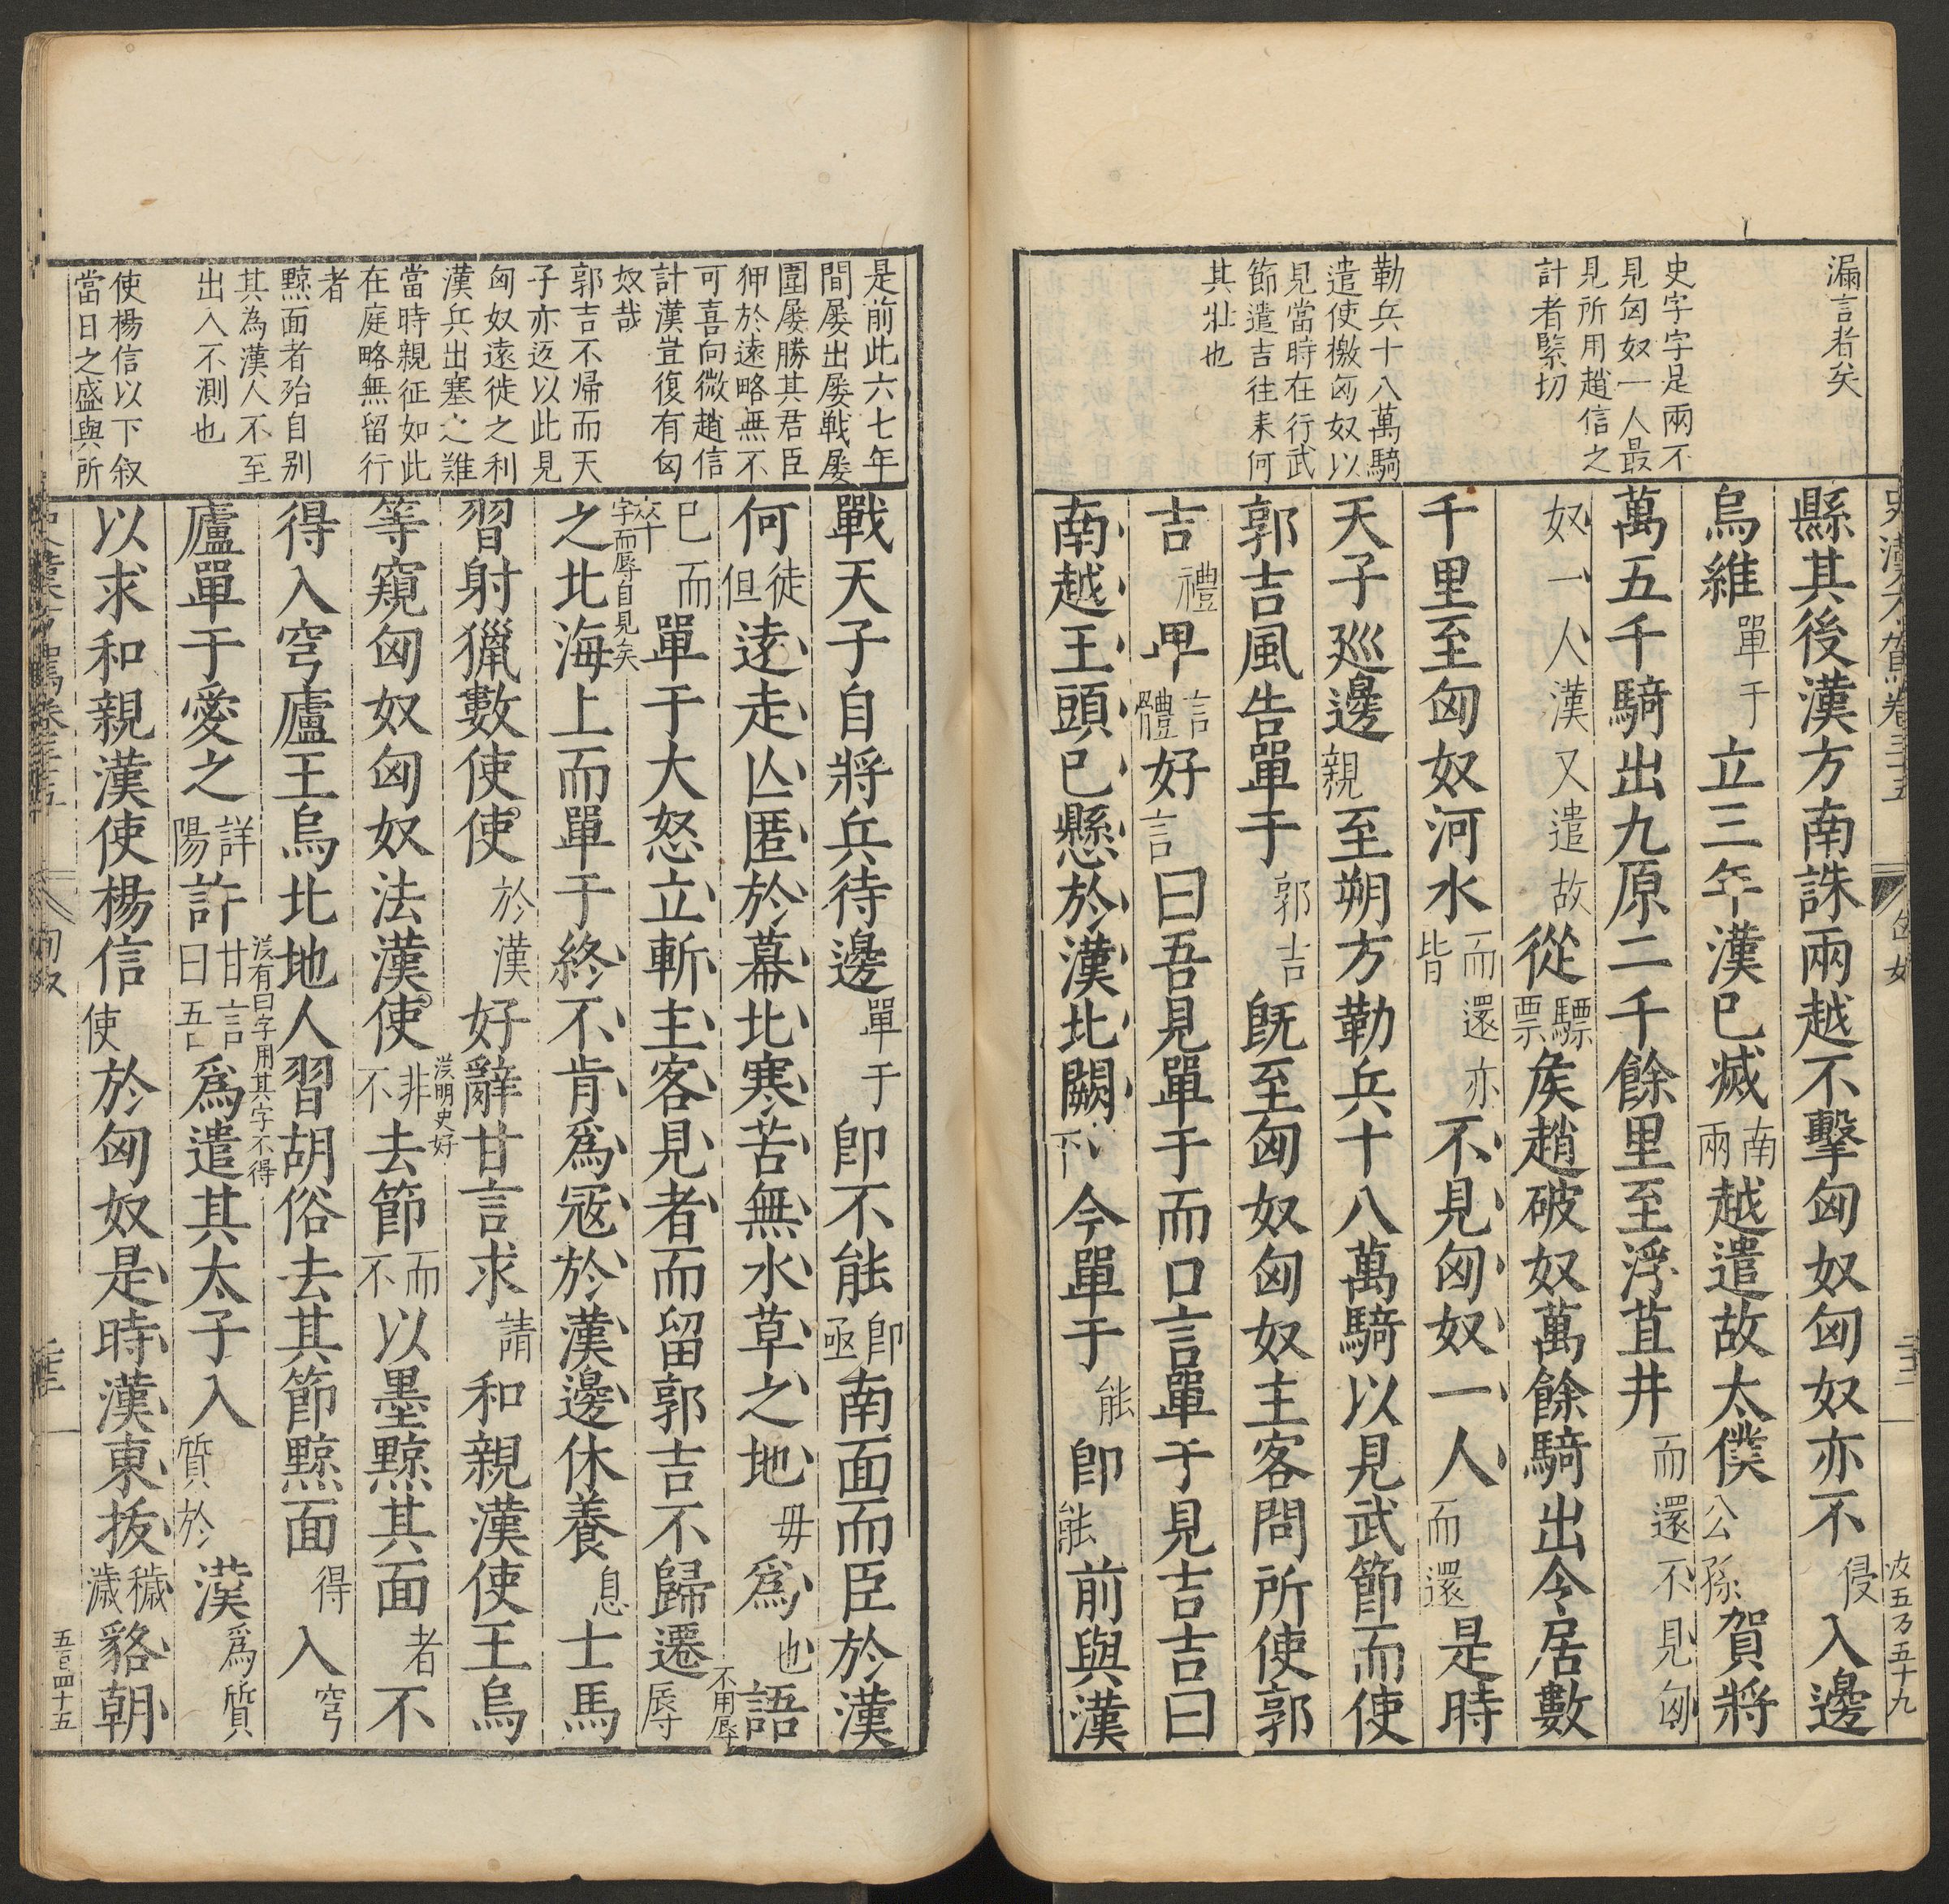 史漢方駕卷三十五 匈奴
漏言者矣
史字字是兩不
見匈奴一人最
見所用趙信之
計者緊切
勒兵十八萬騎
遣使檄匈奴以
見當時在行武
節遣吉往来何
其壯也
縣其後漢方南誅兩越不擊匈奴匈奴亦不侵入邊
烏維單于立三年漢已滅南兩越遣故太僕公孫賀將
萬五千騎出九原二千餘里至浮苴井而還不見匈
奴一人漢又遣故從驃票矦趙破奴萬餘騎出令居數
千里至匈奴河水而還亦皆不見匈奴一人而還是時
天子廵邊親至朔方勒兵十八萬騎以見武節而使
郭吉風告單于郭吉既至匈奴匈奴主客問所使郭
吉禮卑言體好言曰吾見單于而口言單于見吉吉曰
南越王頭已懸於漢北闕下今單于能即能前與漢
是前此六七年
間屡出屡戰屡
圍屡勝其君臣
狎於遠略無不
可喜向微趙信
計漢豈復有匈
奴哉
郭吉不帰而天
子亦返以此見
匈奴遠徙之利
漢兵出塞之難
當時親征如此
在庭略無留行
者
黥面者殆自别
其為漢人不至
出入不測也
使楊信以下叙
當日之盛與所
戰天子自將兵待邊單于即不能即亟南面而臣於漢
何徒但遠走亾匿於幕北寒苦無水草之地毋爲也語
已卒而單于大怒立斬主客見者而留郭吉不歸遷辱
不用辱
字而辱自見矣
之北海上而單于終不肯爲冦於漢邊休養息士馬
習射獵數使使於漢好辭甘言求請和親漢使王烏
漢明史好
等窺匈奴匈奴法漢使非不去節而不以墨黥其面者不
得入穹廬王烏北地人習胡俗去其節黥面得入穹
漢有曰字用其字不得
廬單于愛之詳陽許甘言曰吾爲遣其太子入質於漢爲質
以求和親漢使楊信使於匈奴是時漢東拔穢濊貉朝
史漢方駕卷三十五 匈奴
五百四十五